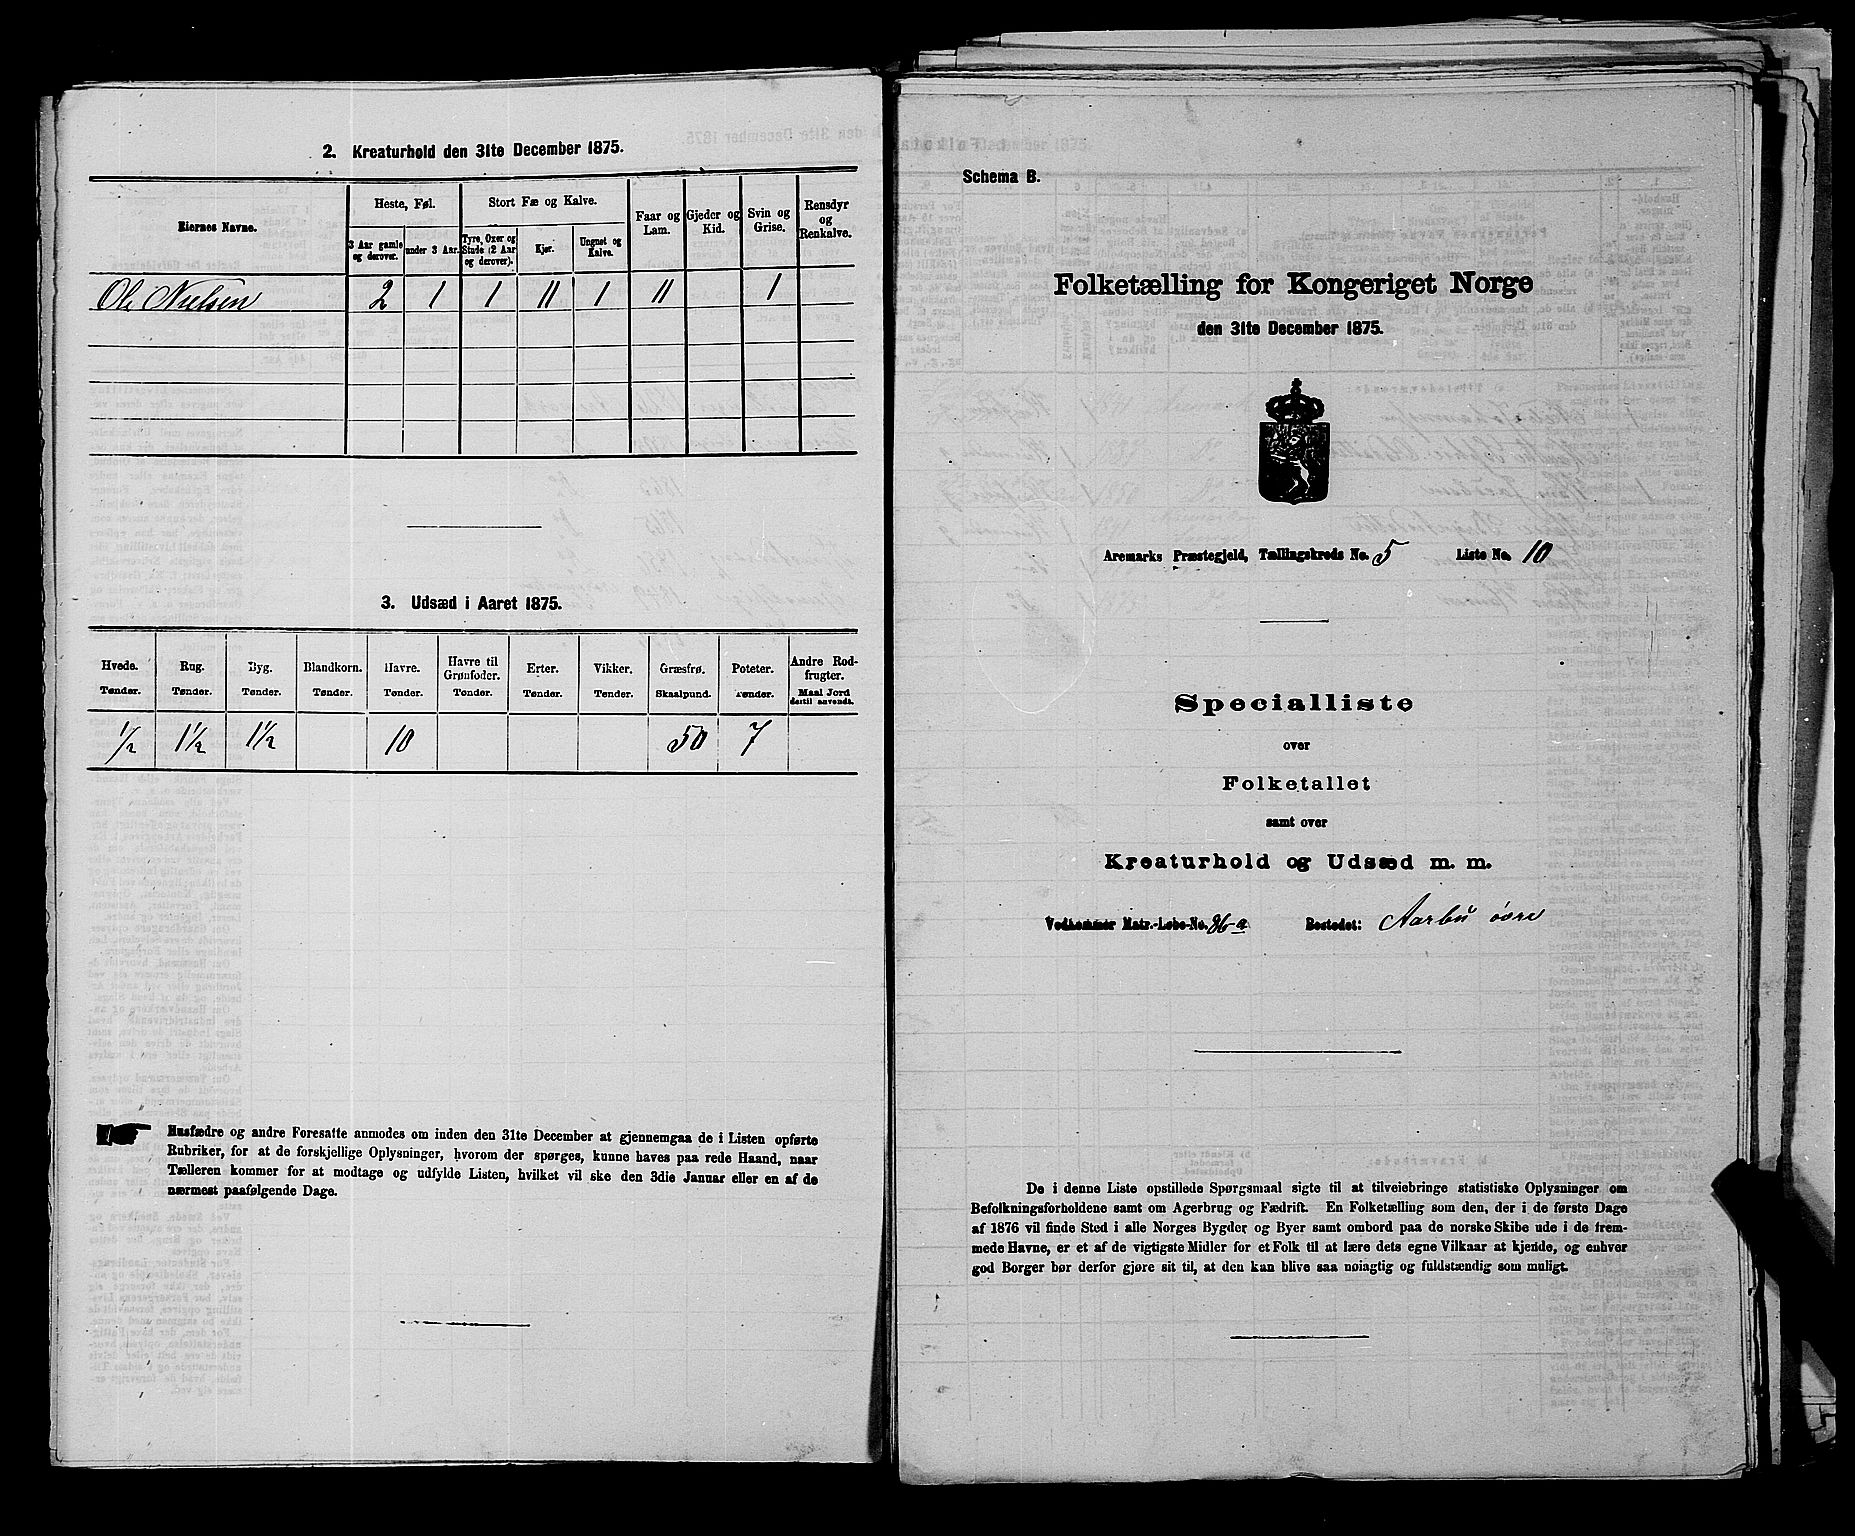 2. Kreaturhold den 31te December 1875.
Eiernes Navne.
Heste, Føl.
3 Aar gamle og derover.
under 3 Aar.
Stort Fæ og Kalve.
Tyre, Oxer og Stude (2 Aar og derover).
Kjør.
Ungnøt og Kalve.
Faar og Lam.
Gjeder og Kid.
Svin og Grise.
Rensdyr og Renkalve.
Ole Nielsen 2 1 1 11 1 11 1
3. Udsæd i Aaret 1875.
Hvede. Rug. Byg. Blandkorn. Havre. Havre til Grønfoder. Erter. Vikker. Græsfrø. Poteter. Andre Rodfrugter.
Tønder. Tønder. Tønder. Tønder. Tønder. Tønder. Tønder. Tønder. Skaalpund. Tønder. Maal Jord dertil anvendt.
1/2 1 1/2 1 1/2 10 50 7
Husfædre og andre Foresatte anmodes om inden den 31te December at gjennemgaa de i Listen opførte
Rubriker, for at de forskjellige Oplysninger, hvorom der spørges, kunne haves paa rede Haand, naar
Tælleren kommer for at modtage og udfylde Listen, hvilket vil ske den 3die Januar eller en af de
nærmest paafølgende Dage.
Schema B.
Folketælling for Kongeriget Norge
den 31te December 1875.
Aremarks Præstegjeld, Tællingskreds No. 5 Liste No. 10
Specialliste
over
Folketallet
samt over
Kreaturhold og Udsæd m. m.
Vedkommer Matr.-Løbe-No. 86-a Bostedet: Aarbu övre
De i denne Liste opstillede Spørgsmaal sigte til at tilveiebringe statistiske Oplysninger om
Befolkningsforholdene samt om Agerbrug og Fædrift. En Folketælling som den, der i de første Dage
af 1876 vil finde Sted i alle Norges Bygder og Byer samt ombord paa de norske Skibe ude i de frem-
mede Havne, er et af de vigtigste Midler for et Folk til at lære dets egne Vilkaar at kjende, og enhver
god Borger bør derfor gjøre sit til, at den kan blive saa nøiagtig og fuldstændig som muligt.